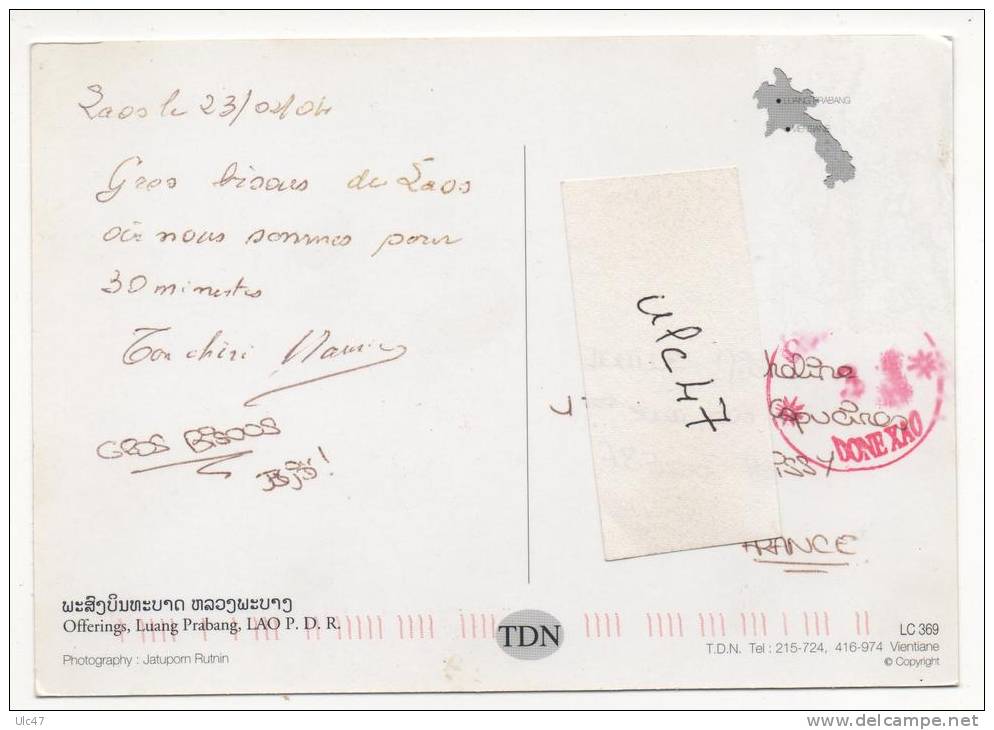 Laos le 23/02/04
Gros bisous du Laos
où nous sommes pour
30 minutes
Ton chéri
GROS BISOOS
LUANG PRABANG
VIENTIANE
ulc47
DONE XAO
ISSY
FRANCE
ພະສົງບິນທະບາດ ຫລວງພະບາງ
Offerings, Luang Prabang, LAO P. D. R.
Photography : Jatuporn Rutnin
TDN
LC 369
T.D.N. Tel : 215-724, 416-974 Vientiane
© Copyright
Ulc47
http://www.delcampe.net